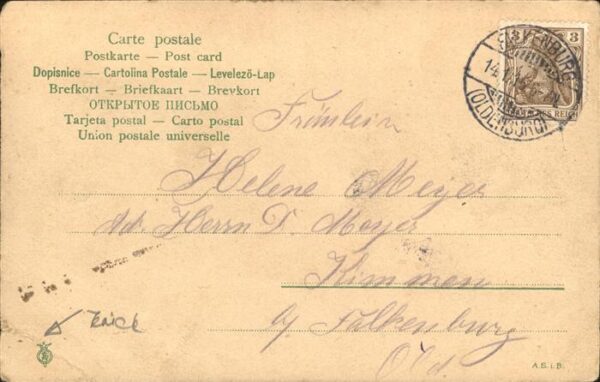 Carte postale
Postkarte — Post card
Dopisnice — Cartolina Postale — Levelező-Lap
Brefkort — Briefkaart — Brevkort
ОТКРЫТОЕ ПИСЬМО
Tarjeta postal — Carto postal
Union postale universelle
3 3
DEUTSCHES REICH
FALKENBURG
(OLDENBURG)
Fräulein
Helene Meyer
Adr. Herrn D. Meyer
Kimmen
b/ Falkenburg
Old.
A.S.i.B.